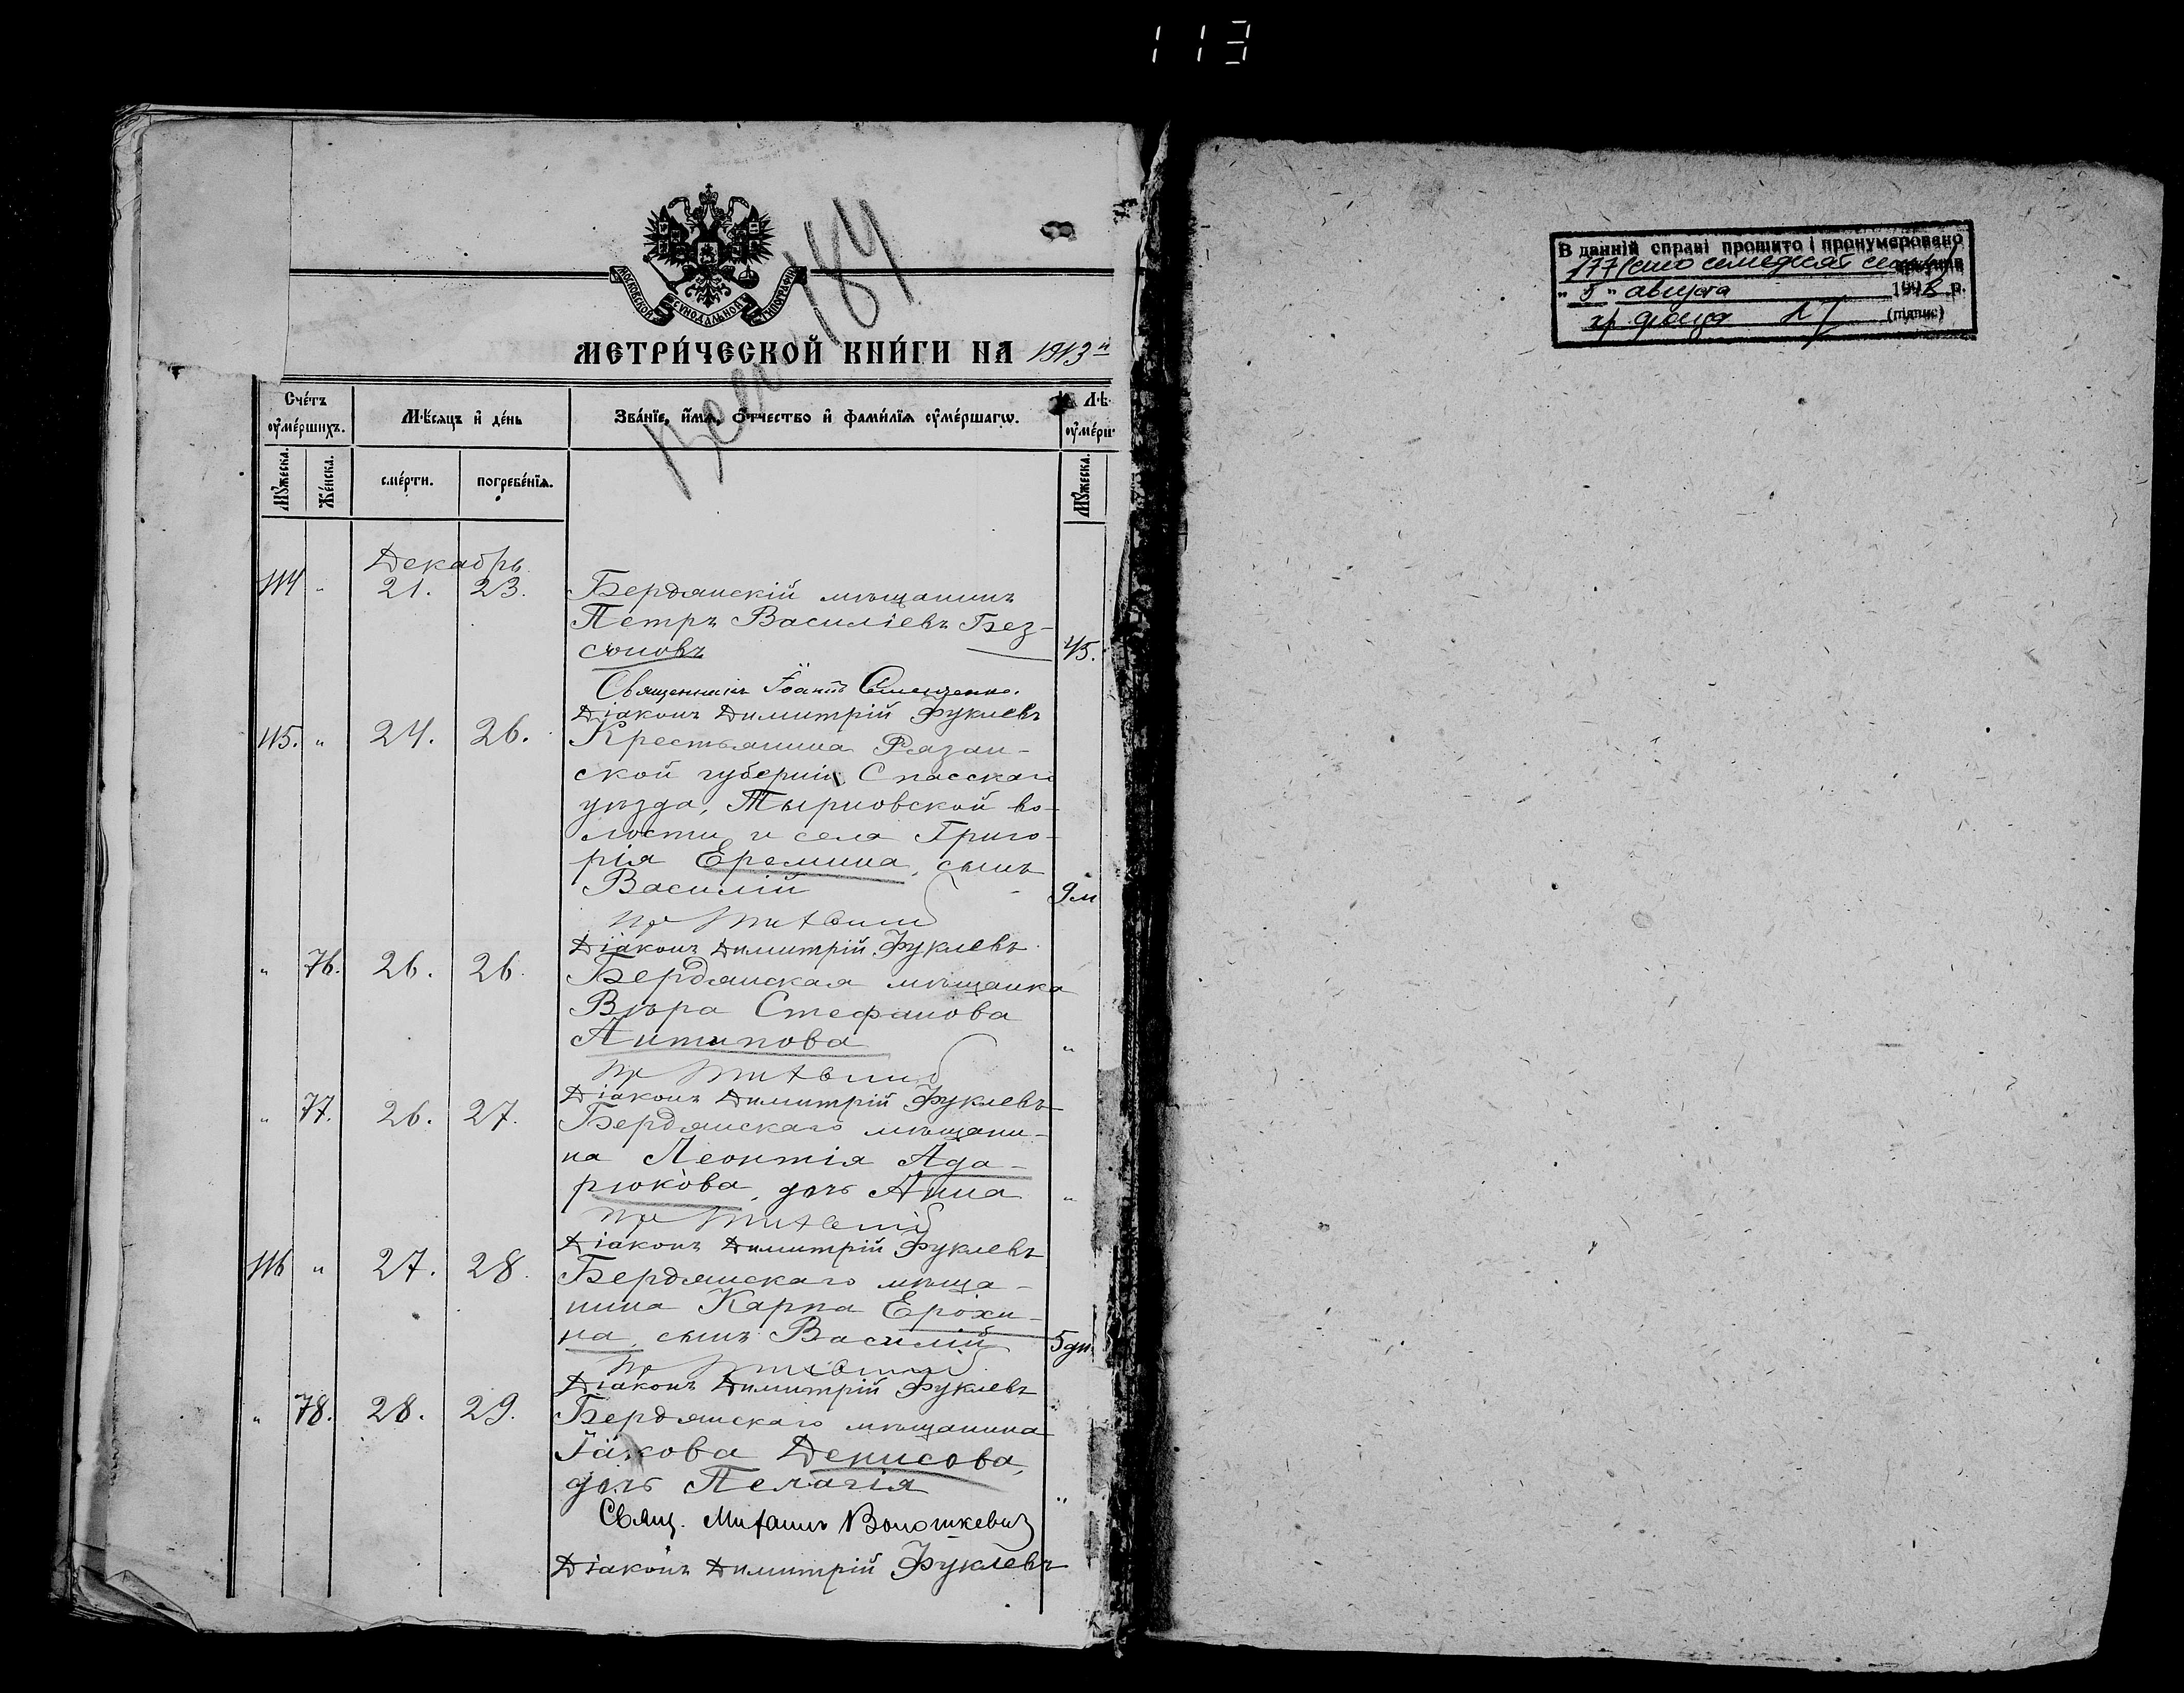 113
184
МОСКОВСКОЙ СѴНОДАЛЬНОЙ ТИПОГРАФІИ
МЕТРИ́ЧЕСКОЙ КНИ́ГИ НА 1913й
Сче́тъ оумершихъ.
Мѣсяцъ и де́нь
Зва́нїе, и҆́мя, о҆́тчество и фами́лїя оумершагѡ.
Лѣ
оумерш
Мꙋжеска.
Же́нска.
сме́рти.
погребе́нїѧ.
Мꙋжеска.
Декабрь
114 " 21. 23. Бердянскій мѣщанинъ
Петръ Василіевъ Без-
соновъ 45.
Священникъ Іоаннъ
Діаконъ Димитрій Фуклевъ
115. " 24. 26. Крестьянина Рязан-
ской губерніи, Спасскаго
уѣзда, Тырновской во-
лости и села Григо-
рія Еремина, сынъ
Василій 9 м
Діаконъ Димитрій Фуклевъ
" 76. 26. 26. Бердянская мѣщанка
Вѣра Стефанова
Антипова "
Діаконъ Димитрій Фуклевъ
" 77. 26. 27. Бердянскаго мѣщани-
на Леонтія Ада-
рюкова, дочь Анна "
Діаконъ Димитрій Фуклевъ
116 " 27. 28. Бердянскаго мѣща-
нина Карпа Ерохи-
на, сынъ Василій 5 дн.
Діаконъ Димитрій Фуклевъ
" 78. 28. 29. Бердянскаго мѣщанина
Іакова Денисова,
дочь Пелагія "
Свящ. Михаилъ Волошкевич
Діаконъ Димитрій Фуклевъ
В данній справі прошито і пронумеровано
177 (сто семьдесят семь)
" 5 " августа 1998 р.
хр. фонда (підпис)